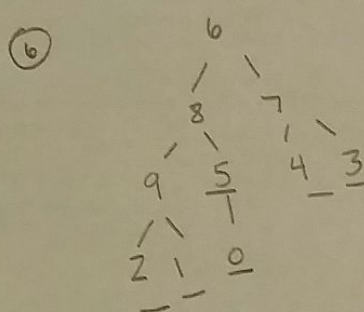 6
6
8 7
9 5 4 3
2 1 0